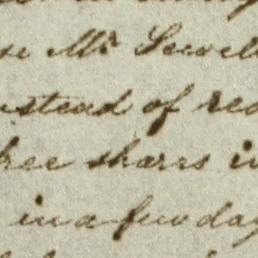 se Mr Sewell
nstead of rec
hree shares in
in a few day